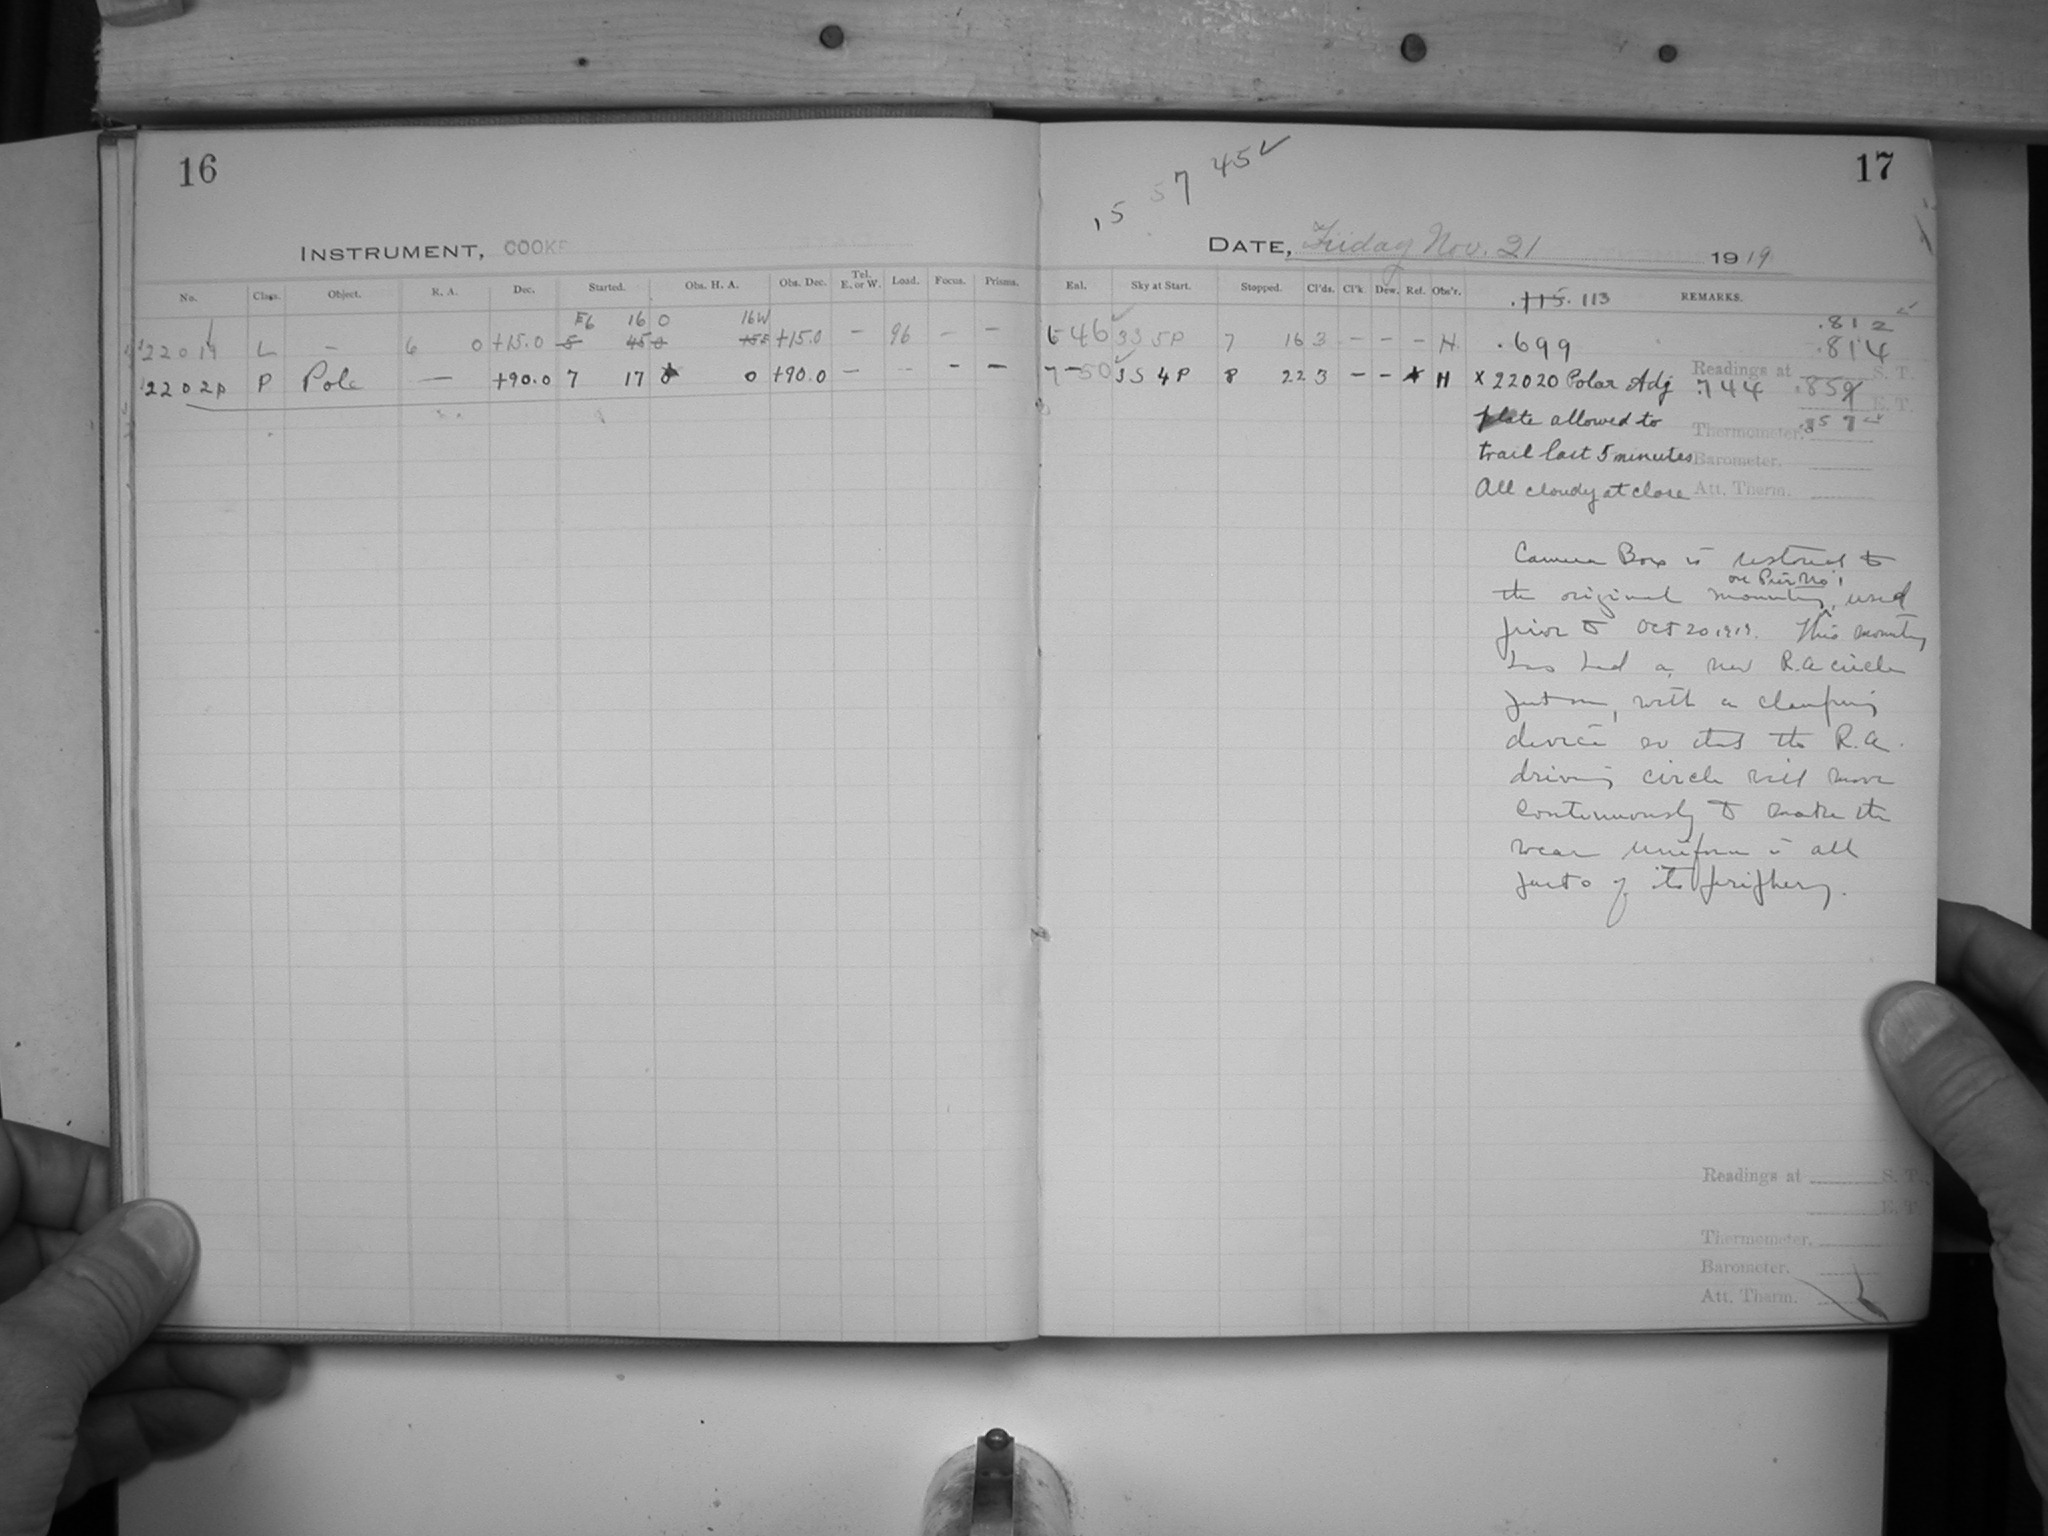 16
17
15 57 45 ✓
INSTRUMENT, COOKE
DATE, Friday Nov. 21 1919
No. Class. Object. R. A. Dec. Started. Obs. H. A. Obs. Dec. Tel. E. or W. Load. Focus. Prisms. Eal. Sky at Start. Stopped. Cl'ds. Cl'k Dew. Ref. Obs'r. REMARKS.
.115. 113
E6 16 0 16W
.812 ✓
22019 L – 6 0 +15.0 5 45 0 +15.0 – 96 – – 6 46 3S 5P 7 16 3 – – – H .699 .814
22020 P Pole — +90.0 7 17 0 +90.0 – – – – 7-50 3S 4P 8 22 3 – – H x 22020 Polar Adj
Readings at S. T.
.744 .859
E. T.
plate allowed to
Thermometer. .857
trail last 5 minutes
Barometer.
All cloudy at close
Att. Therm.
Camera Box is restored to
on Pier No 1
the original mounting, used
prior to Oct 20 1919. This mounting
has had a new R.A circle
put on, with a clamping
device so that the R.A.
driving circle will move
continuously to make the
wear uniform in all
parts of its periphery.
Readings at S. T.
E. T.
Thermometer.
Barometer.
Att. Therm.